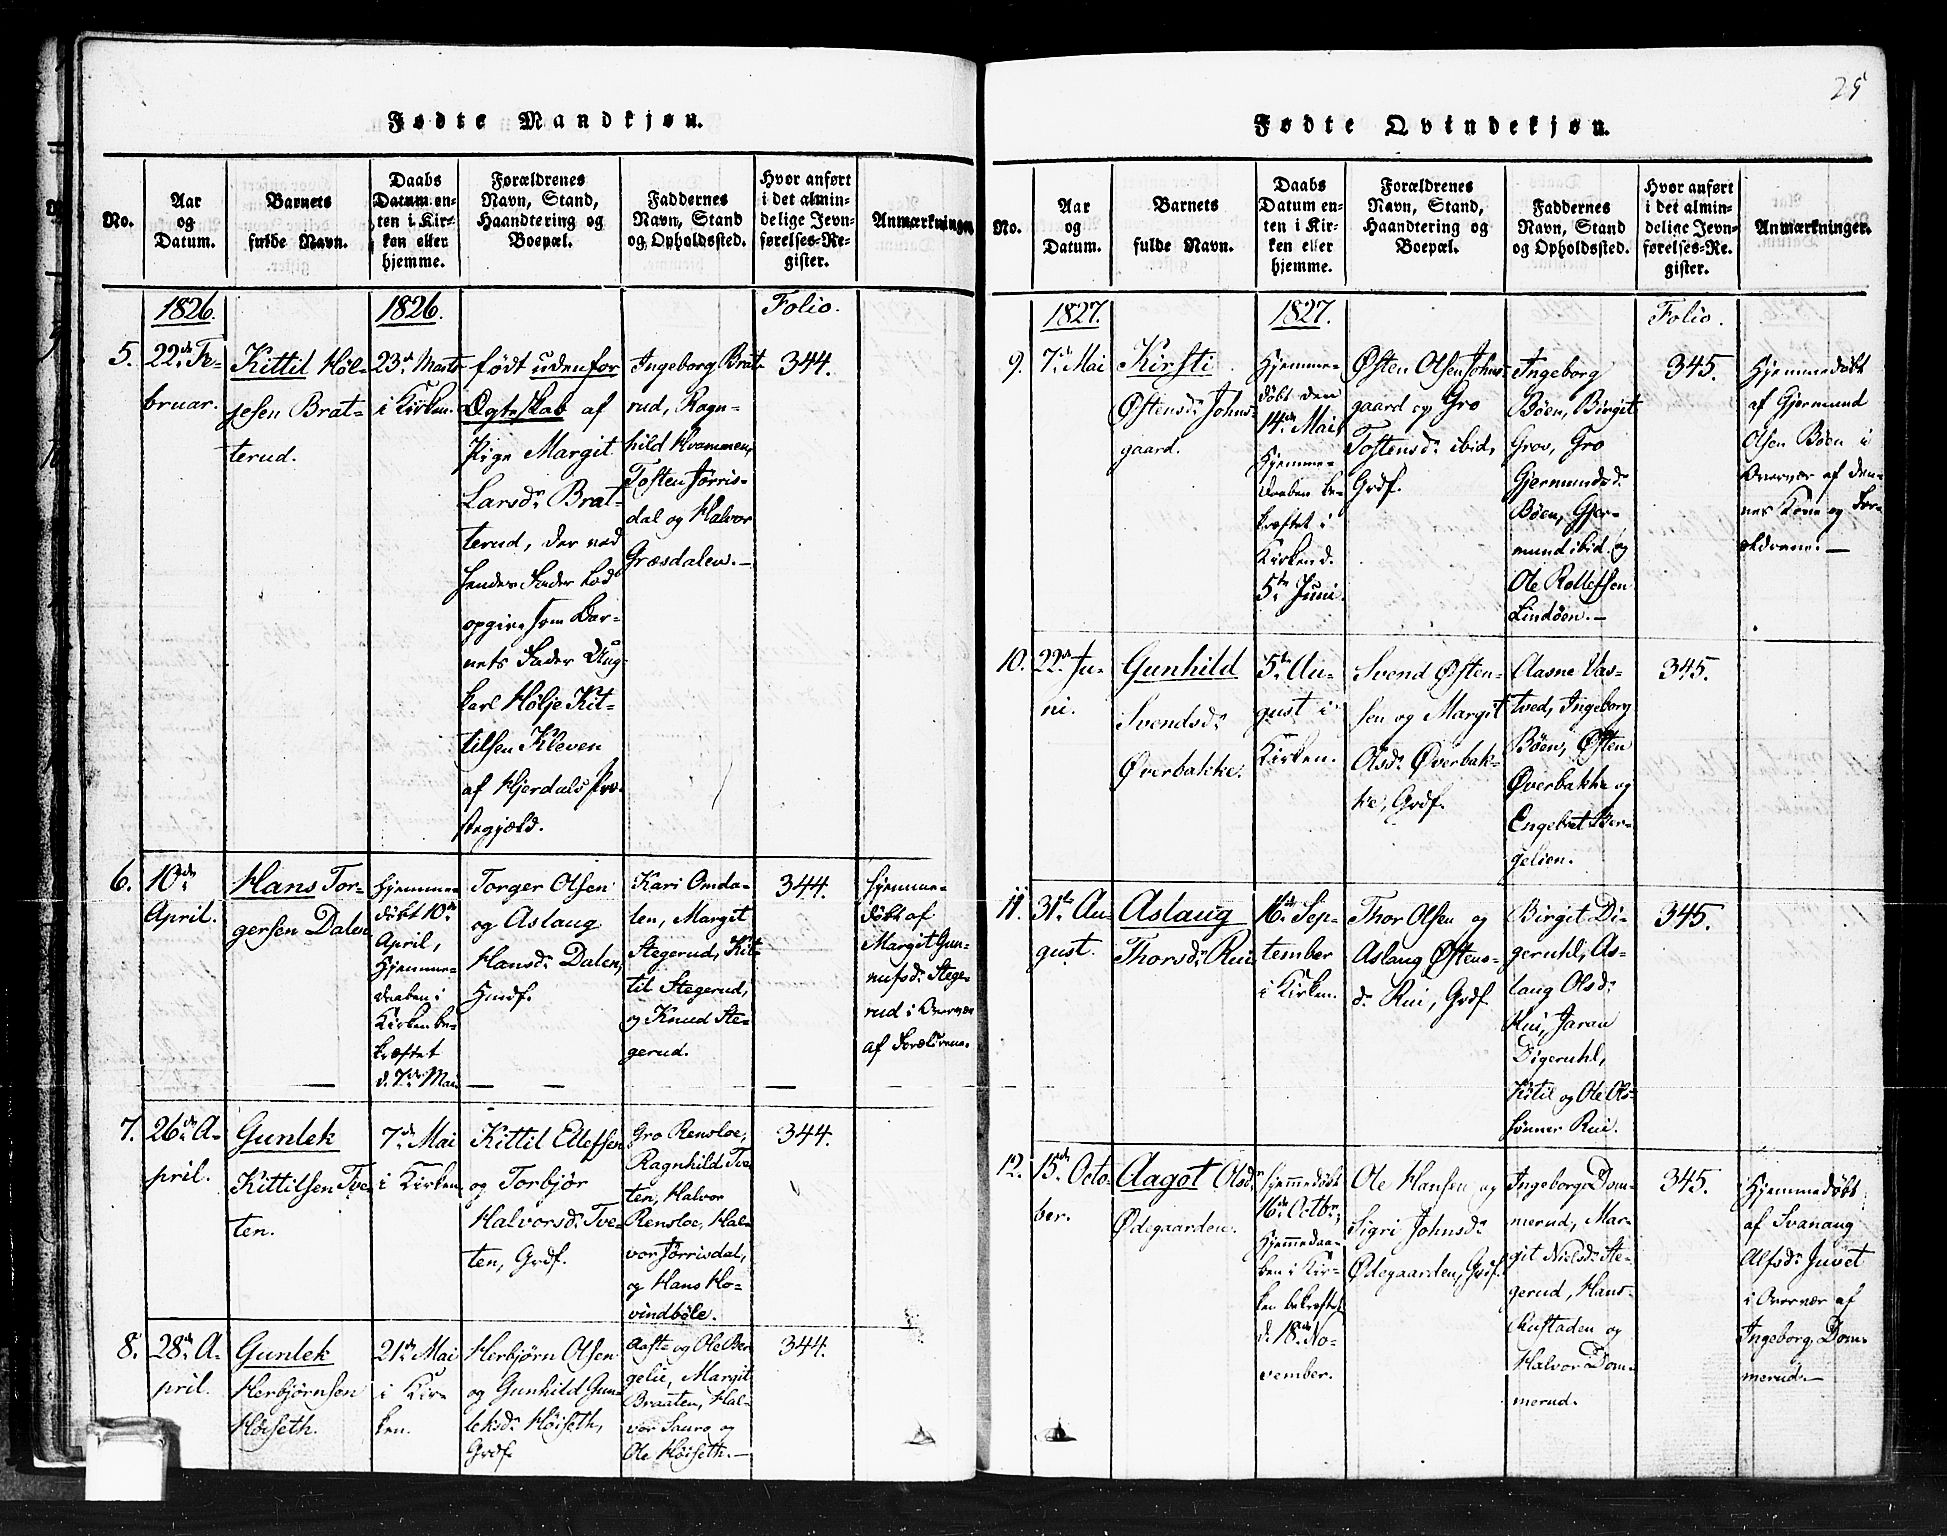 25
Fødte Mandkjøn.
No.
Aar
og
Datum.
Barnets
fulde Navn.
Daabs
Datum en-
ten i Kir-
ken eller
hjemme.
Forældrenes
Navn, Stand,
Haandtering og
Boepæl.
Faddernes
Navn, Stand
og Opholdssted.
Hvor anført
i det almin-
delige Jevn-
førelses-Re-
gister.
Anmærkninger.
1826.
1826.
Folio.
5.
22de Fe-
bruar.
Kittil Høl-
jesen Brat-
terud.
23de Marts
i Kirken.
født udenfor
Ægteskab af
Pige Margit
Larsdr Brat-
terud, der ved
hendes Fader lod
opgive som Bar-
nets Fader Ung-
karl Hølje Kit-
tilsen Kleven
af Hjerdals Præ-
stegjæld.
Ingeborg Brat-
rud, Ragn-
hild Hvammen,
Tosten Jørris-
dal og Halvor
Græsdalen.—
344.
6.
10de
April.
Hans Tor-
gersen Dalen
Hjemme-
døbt 10de
April,
Hjemme-
daaben i
Kirken be-
kræftet
d. 7de Mai
Torger Olsen
og Aslaug
Hansdr Dalen,
Huusf.
Kari Omda-
len, Margit
Stegerud, Kit-
til Stegerud,
og Knud Ste-
gerud.
344.
Hjemme-
døbt af
Margit Gun-
nufsdr Stege-
rud i Overvær
af Forældrene.
7.
26de A-
pril.
Gunlek
Kittilsen Tve-
ten.
7de Mai
i Kirken
Kittil Ellefsen
og Torbjør
Halvorsdr Tve-
ten, Grdf.
Gro Rensloe,
Ragnhild Tve-
ten, Halvor
Rensloe, Hal-
vor Jørrisdal,
og Hans Ho-
vindbøle.
344.
8.
28de A-
pril.
Gunlek
Herbjørnsen
Høiseth.
21de Mai
i Kir-
ken.
Herbjørn Olsen
og Gunhild Gun-
leksdr Høiseth,
Grdf.
Aaste og Ole Ber-
gelie, Margit
Braaten, Hal-
vor Sauro og
Ole Høiseth.—
344.
Fødte Qvindekjøn.
No.
Aar
og
Datum.
Barnets
fulde Navn.
Daabs
Datum en-
ten i Kir-
ken eller
hjemme.
Forældrenes
Navn, Stand,
Haandtering og
Boepæl.
Faddernes
Navn, Stand
og Opholdssted.
Hvor anført
i det almin-
delige Jevn-
førelses-Re-
gister.
Anmærkninger.
1827.
1827.
Folio.
9.
7de Mai
Kirsti
Østensdr Johns-
gaard.
Hjemme-
døbt den
14de Mai,
Hjemme-
daaben be-
kræftet i
Kirken d.
5te Juni.
Østen Olsen Johns-
gaard og Gro
Tostensdr ibid,
Grdf.
Ingeborg
Bøen, Birgit
Grov, Gro
Gjermundsdr
Bøen, Gjer-
mund ibid. og
Ole Rollefsen
Lindøen.—
345.
Hjemmedøbt
af Gjermund
Olsen Bøen i
Overvær af den-
nes Kone og For-
ældrene.—
10.
22de Ju-
ni.
Gunhild
Svendsdr
Øverbakke.
5te Au-
gust i
Kirken.
Svend Østen-
sen og Margit
Olsdr Øverbak-
ke, Grdf.
Aasne Vas-
tved, Ingeborg
Bøen, Østen
Øverbakke og
Engebret Ber-
gelien.
345.
11.
31te Au-
gust.
Aslaug
Thorsdr Rui
16de Sep-
tember
i Kirken.
Thor Olsen og
Aslaug Østens-
dr Rui, Grdf.
Birgit Di-
geruhl, As-
laug Olsdr
Rui, Jaran
Digeruhl,
Kitil og Ole Ols-
sønner Rui.
345.
12.
15de Octo-
ber.
Aagot Olsdr
Ødegaarden.
Hjemmedøbt
16de Octbr,
Hjemmedaa-
ben i Kir-
ken bekræftet
d. 18de No-
vember.
Ole Hansen og
Sigri Johnsdr
Ødegaarden, Grdf.
Ingeborg Dom-
merud, Mar-
git Nielsdr Ste-
gerud, Hans
Rustaden og
Halvor Dom-
merud.
345.
Hjemmedøbt
af Svanaug
Alfsdr Juvet
i Overvær af
Ingeborg Dom-
merud.—